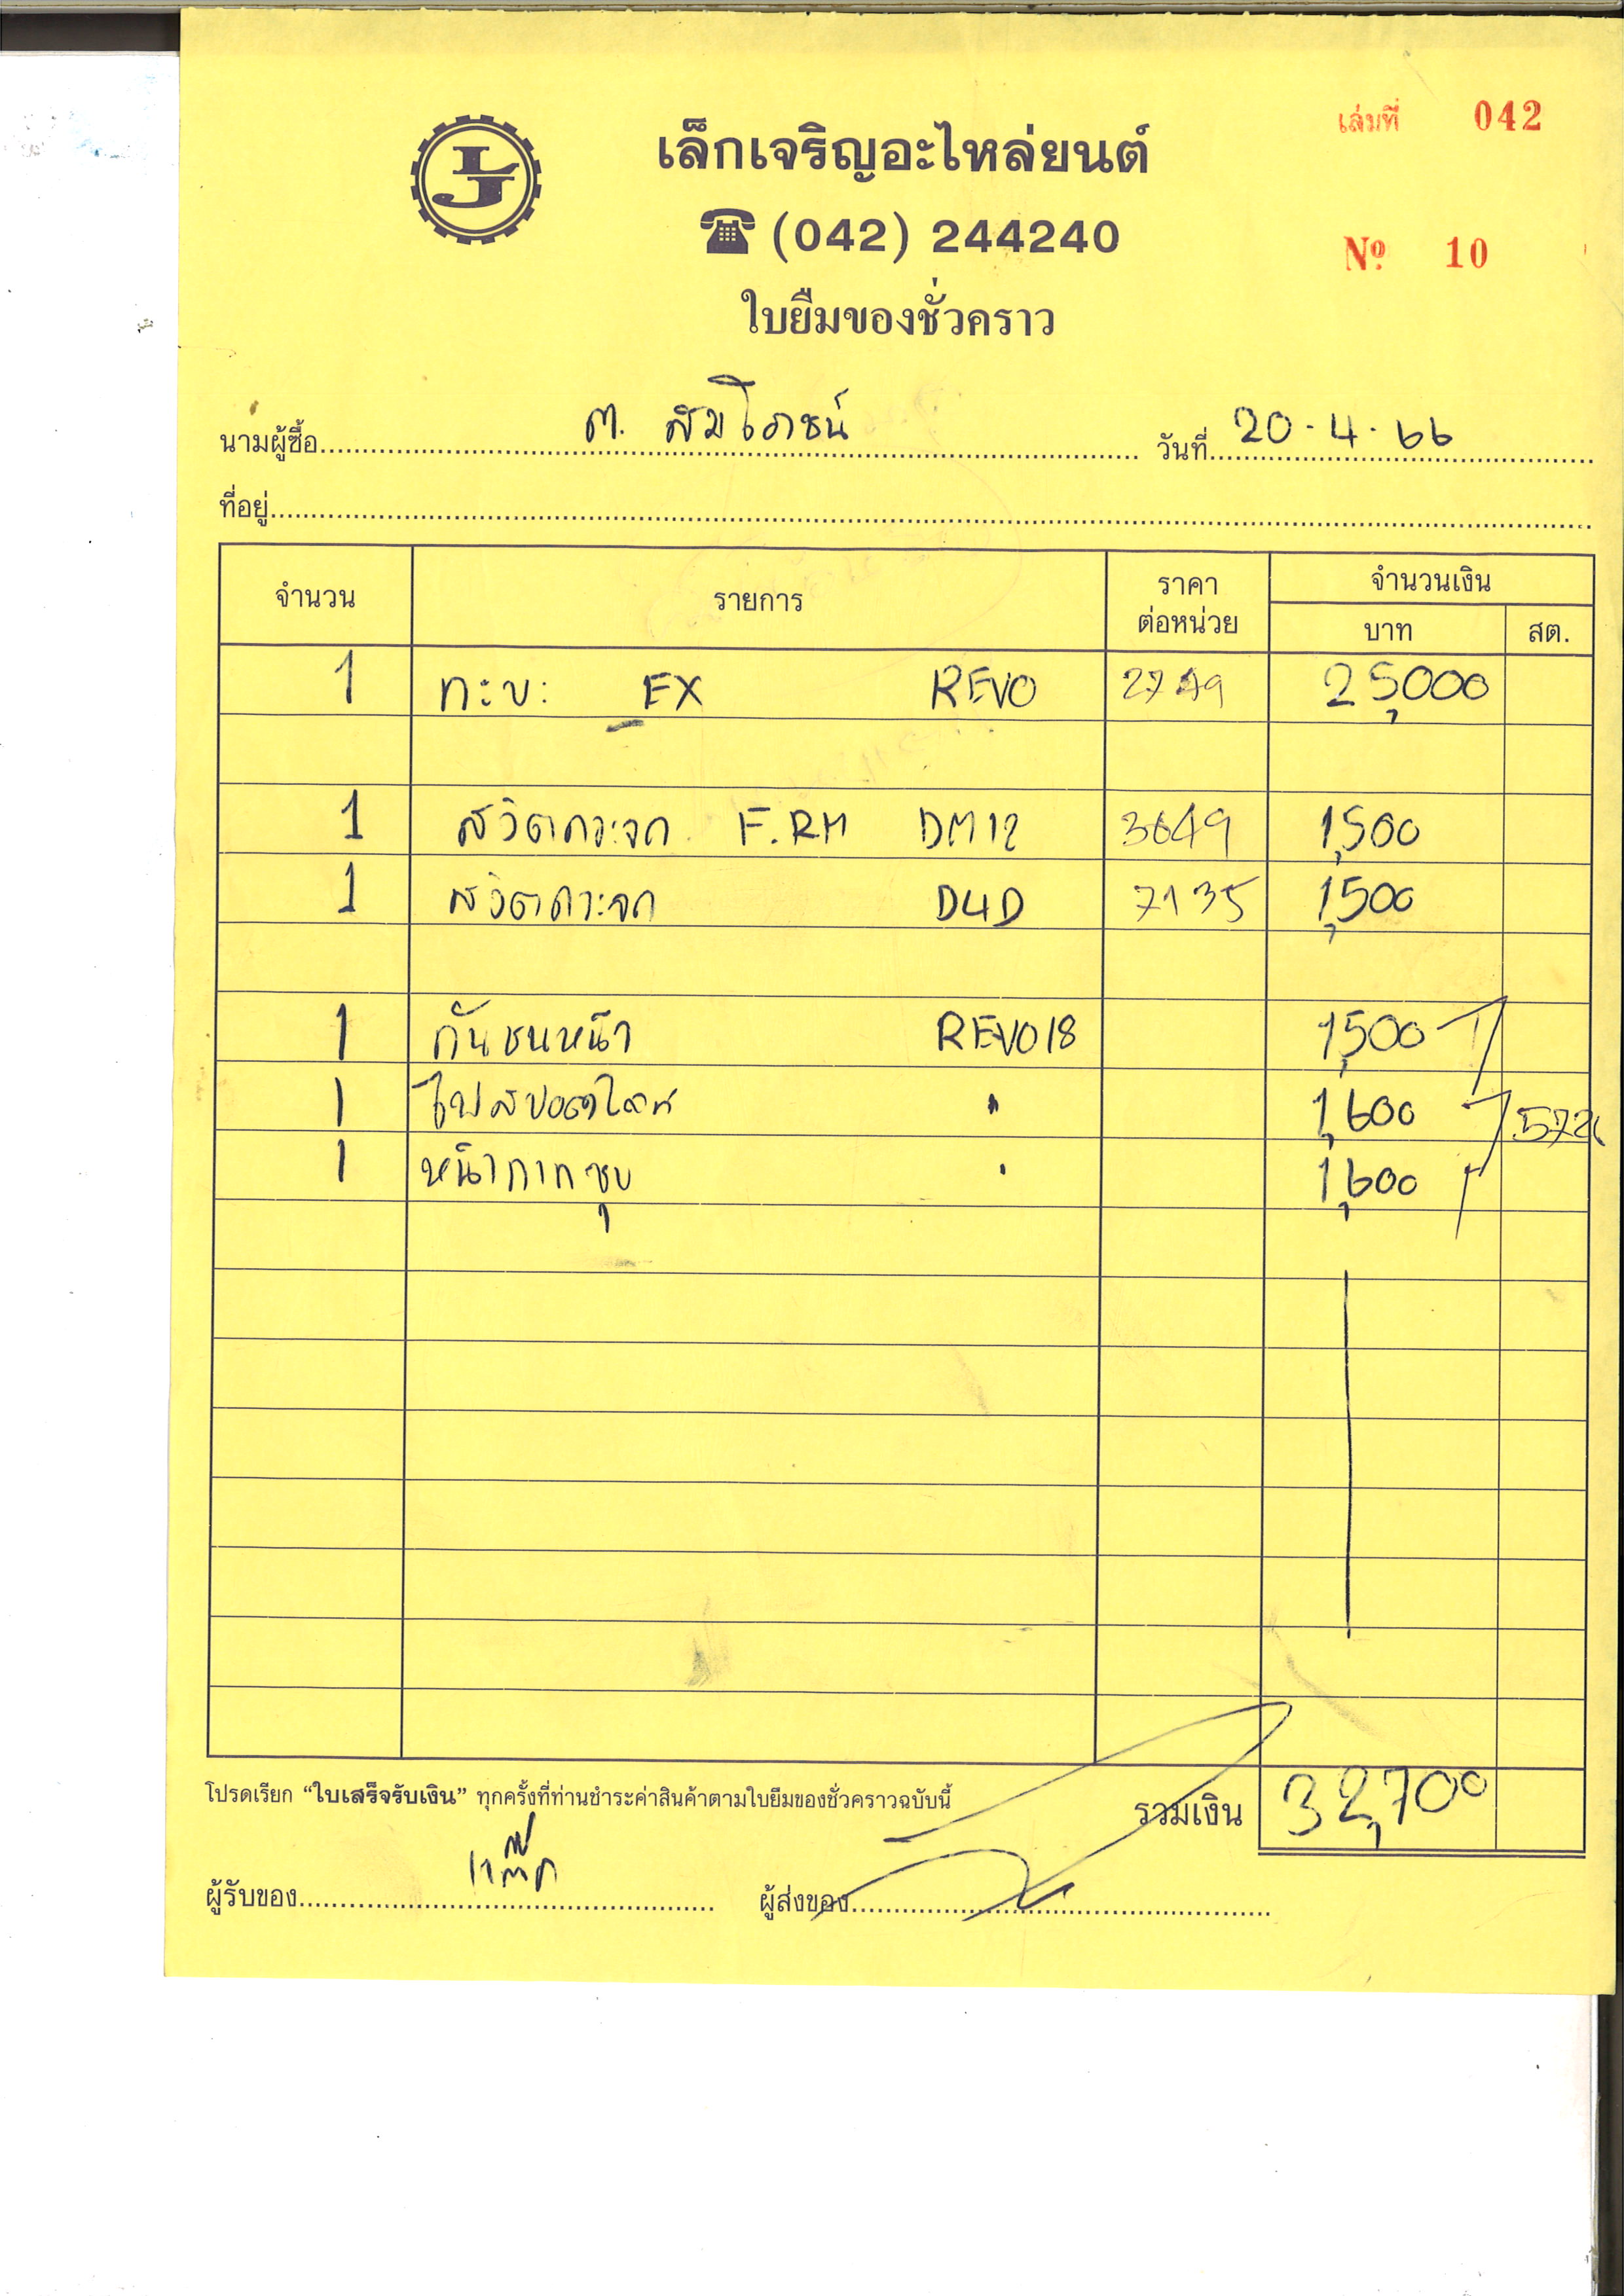 เล่มที่ 042
LJ
เล็กเจริญอะไหล่ยนต์
☎ (042) 244240
Nº 10
ใบยืมของชั่วคราว
นามผู้ซื้อ ต. สัมโภชน์ วันที่ 20.4.66
ที่อยู่
จำนวน รายการ ราคาต่อหน่วย จำนวนเงิน
บาท สต.
1 กะบะ EX REVO 2749 25,000
1 สวิตกระจก F.RH DM12 3649 1,500
1 สวิตกระจก D4D 7135 1,500
1 กันชนหน้า REVO18 1,500
1 ไฟสปอตไลท์ " 1,600
1 หน้ากากชุบ " 1,600
โปรดเรียก “ใบเสร็จรับเงิน” ทุกครั้งที่ท่านชำระค่าสินค้าตามใบยืมของชั่วคราวฉบับนี้
รวมเงิน 32,700
ผู้รับของ ผู้ส่งของ